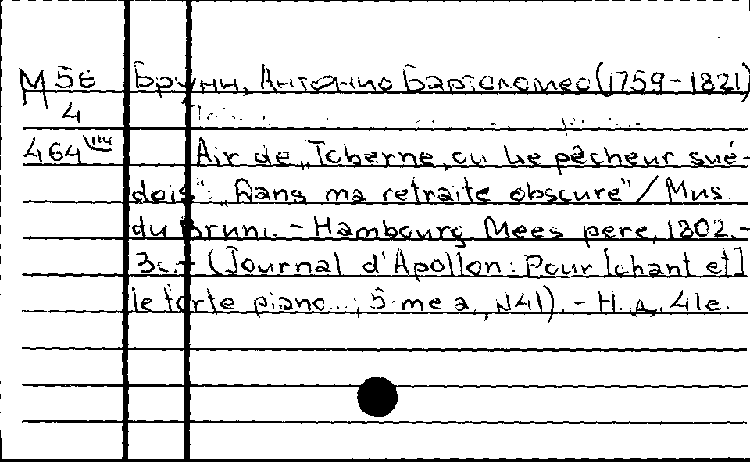 М 5б Бруни, Антонио Бартоломео (1759-1821)
4
464 Air de „Toberne, ou Le pêcheur sué-
dois": „Dans ma retraite obscure"/Mus.
du Bruni. - Hambourg, Mees pere, 1802. -
3с. - (Journal d'Apollon: Pour [chant et]
le forte piano...; 5-me a., N41). - Н. д. 41e.